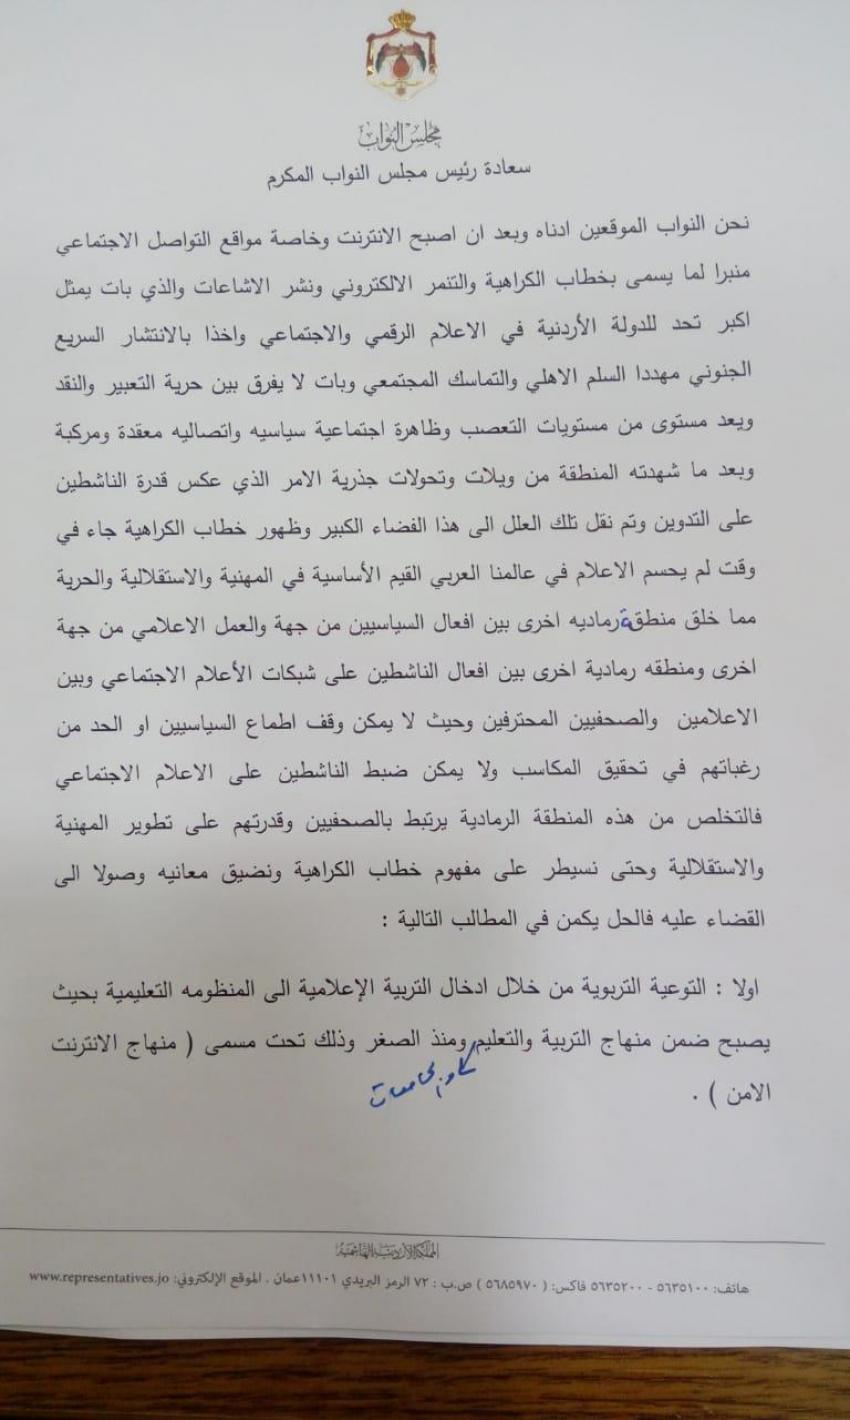 مجلس النواب
سعادة رئيس مجلس النواب المكرم
نحن النواب الموقعين ادناه وبعد ان اصبح الانترنت وخاصة مواقع التواصل الاجتماعي
منبرا لما يسمى بخطاب الكراهية والتنمر الالكتروني ونشر الاشاعات والذي بات يمثل
اكبر تحد للدولة الأردنية في الاعلام الرقمي والاجتماعي واخذا بالانتشار السريع
الجنوني مهددا السلم الاهلي والتماسك المجتمعي وبات لا يفرق بين حرية التعبير والنقد
ويعد مستوى من مستويات التعصب وظاهرة اجتماعية سياسيه واتصاليه معقدة ومركبة
وبعد ما شهدته المنطقة من ويلات وتحولات جذرية الامر الذي عكس قدرة الناشطين
على التدوين وتم نقل تلك العلل الى هذا الفضاء الكبير وظهور خطاب الكراهية جاء في
وقت لم يحسم الاعلام في عالمنا العربي القيم الأساسية في المهنية والاستقلالية والحرية
مما خلق منطقة رماديه اخرى بين افعال السياسيين من جهة والعمل الاعلامي من جهة
اخرى ومنطقه رمادية اخرى بين افعال الناشطين على شبكات الأعلام الاجتماعي وبين
الاعلامين والصحفيين المحترفين وحيث لا يمكن وقف اطماع السياسيين او الحد من
رغباتهم في تحقيق المكاسب ولا يمكن ضبط الناشطين على الاعلام الاجتماعي
فالتخلص من هذه المنطقة الرمادية يرتبط بالصحفيين وقدرتهم على تطوير المهنية
والاستقلالية وحتى نسيطر على مفهوم خطاب الكراهية ونضيق معانيه وصولا الى
القضاء عليه فالحل يكمن في المطالب التالية :
اولا : التوعية التربوية من خلال ادخال التربية الإعلامية الى المنظومه التعليمية بحيث
يصبح ضمن منهاج التربية والتعليم ومنذ الصغر وذلك تحت مسمى ( منهاج الانترنت
الجامعات
الامن ) .
المملكة الأردنية الهاشمية
هاتف: ٥٦٣٥١٠٠ - ٥٦٣٥٢٠٠ فاكس: ( ٥٦٨٥٩٧٠ ) ص.ب : ٧٢ الرمز البريدي ١١١٠١عمان . الموقع الإلكتروني: www.representatives.jo